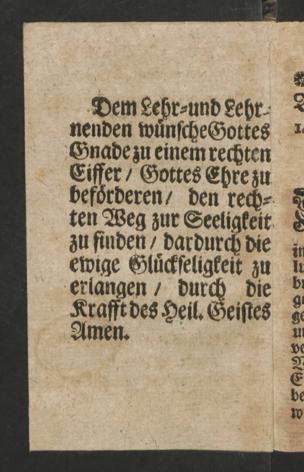 Dem Lehr-und Lehr-
nenden wünsche Gottes
Gnade zu einem rechten
Eiffer / Gottes Ehre zu
beförderen / den rech-
ten Weg zur Seeligkeit
zu finden / dardurch die
ewige Glückseligkeit zu
erlangen / durch die
Krafft des Heil. Geistes
Amen.